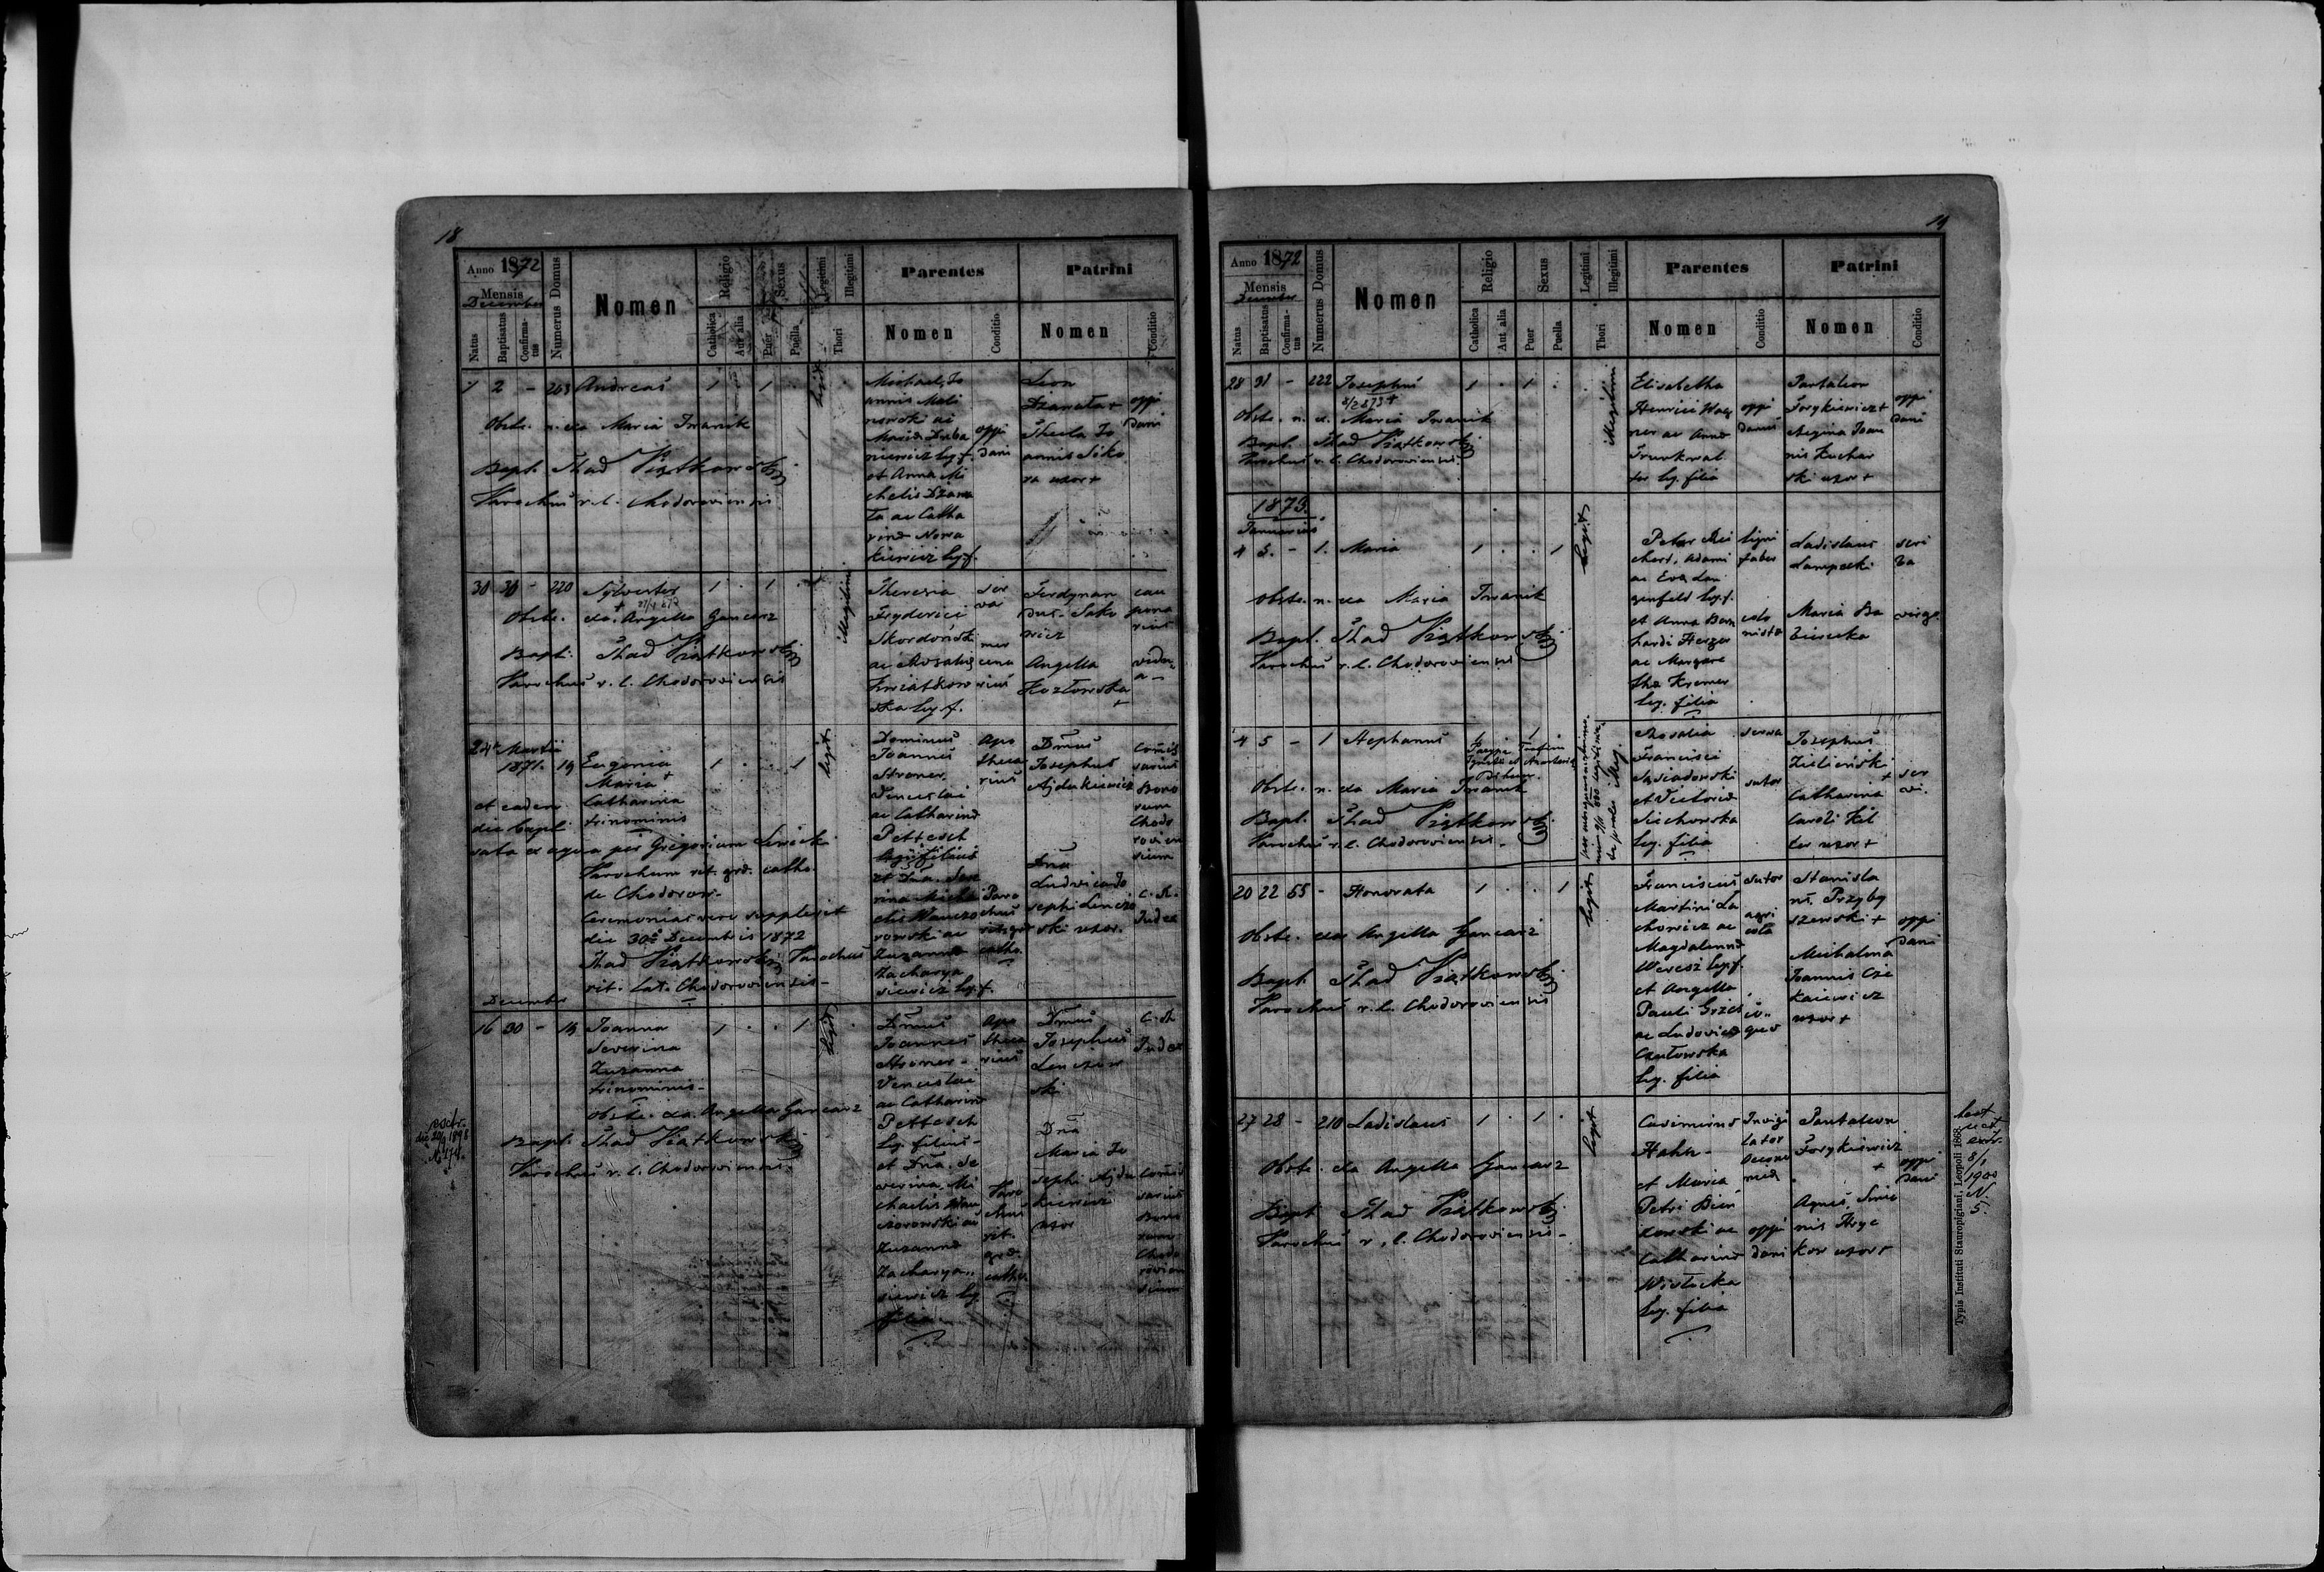 18
Anno 1872
Mensis
December
Natus
Baptisatus
Confirma-
tus
Numerus Domus
Nomen
Religio
Catholica
Aut alia
Sexus
Puer
Puella
Legitimi
Illegitimi
Thori
Parentes
Nomen
Conditio
Patrini
Nomen
Conditio
1 2 - 203 Andreas 1 1
Obste. n. cta Maria Iwanik
Bapt. Thad Piątkowski
Parochus r. l. Chodoroviensis
legit.
Michael, Jo
annis Mali
nowski ac
Maria
niewicz leg. f.
et Anna Mi
chelis Dżama
ta ac Catha
rina Nowa
kiewicz leg. f.
oppi
dani
Leon
Dżamata +
Thecla Jo
annis Siko
ra uxor +
oppi
dani
30 30 - 220 Sylvester 1 . 1 .
Obste. cta. Angella Gancarz
Bapt. Thad Piątkowski
Parochus r. l. Chodoroviensis
illegitimi
Theresia
Fryderici
Skordoński
ac Rosalia
Kwiatkow
ska leg. f.
ser
va
mer
cena
rius
Ferdynan
dus Sako
wicz
Angella
Kozłowska
+
cau
pona
rius
vidu
a -
24a Martii
1871. 19 Eugenia 1 . . 1
Maria +
Catharina
trinominis
et eadem
die bapt
sata ex aqua per Gregorium Lewicki
Parochum rit. grc. catho.
de Chodorow.
Ceremonias vero supplevit
die 30a Decembris 1872
Thad Piątkowski Parochus
rit. lat. Chodoroviensis -
legit
Dominus
Joannes
Stromer
Venceslai
ac Catharina
Pettesch
leg. filius
et Dna. Seve
rina Micha
elis Wauczo
rowski ac
Zuzanna
Zacharya
siewicz leg. f.
Apo
theca
rius
Paro
chus
rit. grc
catho.
Dmus
Josephus
Ajdukiewicz
Dna
Ludovica Jo
sephi Lenczo
ski uxor.
Comis
sarius
Bono
rum
Chodo
rovien
sium
C. R.
Judex
December
16 30 - 19 Joanna 1 . . 1
Severina
Zuzanna
trinominis -
Obste. cta. Angella Gancarz
Bapt. Thad Piątkowski
Parochus r. l. Chodoroviensis.
legit
Dmus
Joannes
Stromer -
Venceslai
ac Catharina
Pettesch
leg. filius -
et Dna. Se
verina, Mi
chaelis Wau
czorowski ac
Zuzanna
Zacharya
siewicz leg.
filia
Apo
theca
rius
Paro
chus
rit.
grc.
catho.
Dmus
Josephus
Lenczow
ski
Dna
Maria Jo
sephi Ajdu
kiewicz
uxor
C. R.
Judex
Comis
sarius
Bono
rum
Chodo
rovien
sium
extr.
die 20/9 1896
N. 174.
19
Anno 1872
Mensis
December
Natus
Baptisatus
Confirma-
tus
Numerus Domus
Nomen
Religio
Catholica
Aut alia
Sexus
Puer
Puella
Legitimi
Illegitimi
Thori
Parentes
Nomen
Conditio
Patrini
Nomen
Conditio
28 31 - 222 Josephus 1 . 1 .
Obste. n. ct. Maria Iwanik
Bapt. Thad Piątkowski
Parochus r. l. Chodoroviensis.
illegitimi
Elisabetha
Henrici Wag
ner ac Anna
ter leg. filia
oppi
danus
Pantaleon
Forykiewicz +
Regina Joan
nis Kuchar
ski uxor +
oppi
dani
1873.
Januarius
4 5. - 1. Maria 1 . . 1
Obste. n. cta Maria Iwanik
Bapt. Thad Piątkowski
Parochus r. l. Chodoroviensis
legit
Peter Rei
chert, Adami
ac Eva Lan
genfeld leg. f.
et Anna Bern
hardi Herzer
ac Margare
tha Kremer
leg. filia
ligni
faber
colo
nista
Ladislaus
Lampecki
Maria Ba
ziencka
scri
ba
virgo.
4 5 - 1 Stephanus 1 1
Obste. n. cta Maria Iwanik
Bapt. Thad Piątkowski
Parochus r. l. Chodoroviensis -
Rosalia
Francisci
Sąsiadowski
et Victoria
Siechowska
leg. filia
serva
sutor
Josephus
Zieliński
+
Catharina
Caroli Kel
ler uxor +
ser
vi.
20 22 55 - Honorata 1 . . 1
Obste. cta Angella Gancarz
Bapt. Thad Piątkowski
Parochus r. l. Chodoroviensis
legit
Franciscus
Martini La
chowicz ac
Magdalenna
Weresz leg. f.
et Angella,
Pauli Grzes
ac Ludovica
Czułowska
leg. filia
sutor
agri
cola
Stanisla
us Przyby
szewski +
Michalina
Joannis Cze
kaiewicz
uxor +
oppi
dani
27 28 - 210 Ladislaus 1 . 1 .
Obste. cta Angella Gancarz
Bapt. Thad Piątkowski
Parochus r. l. Chodoroviensis -
legit
Casimirus
Hahn -
et Maria
Petri Bień
kowski ac
Catharina
Wisłocka
leg. filia
Invigi
lator
oppi
dani
Pantaleon
Forykiewicz
+
Agnes, Simeo
nis Hryc
kow uxor +
oppi
dani
extr.
8/1
1900
N.
5.
Typis Instituti Stauropigiani, Leopoli 1868.